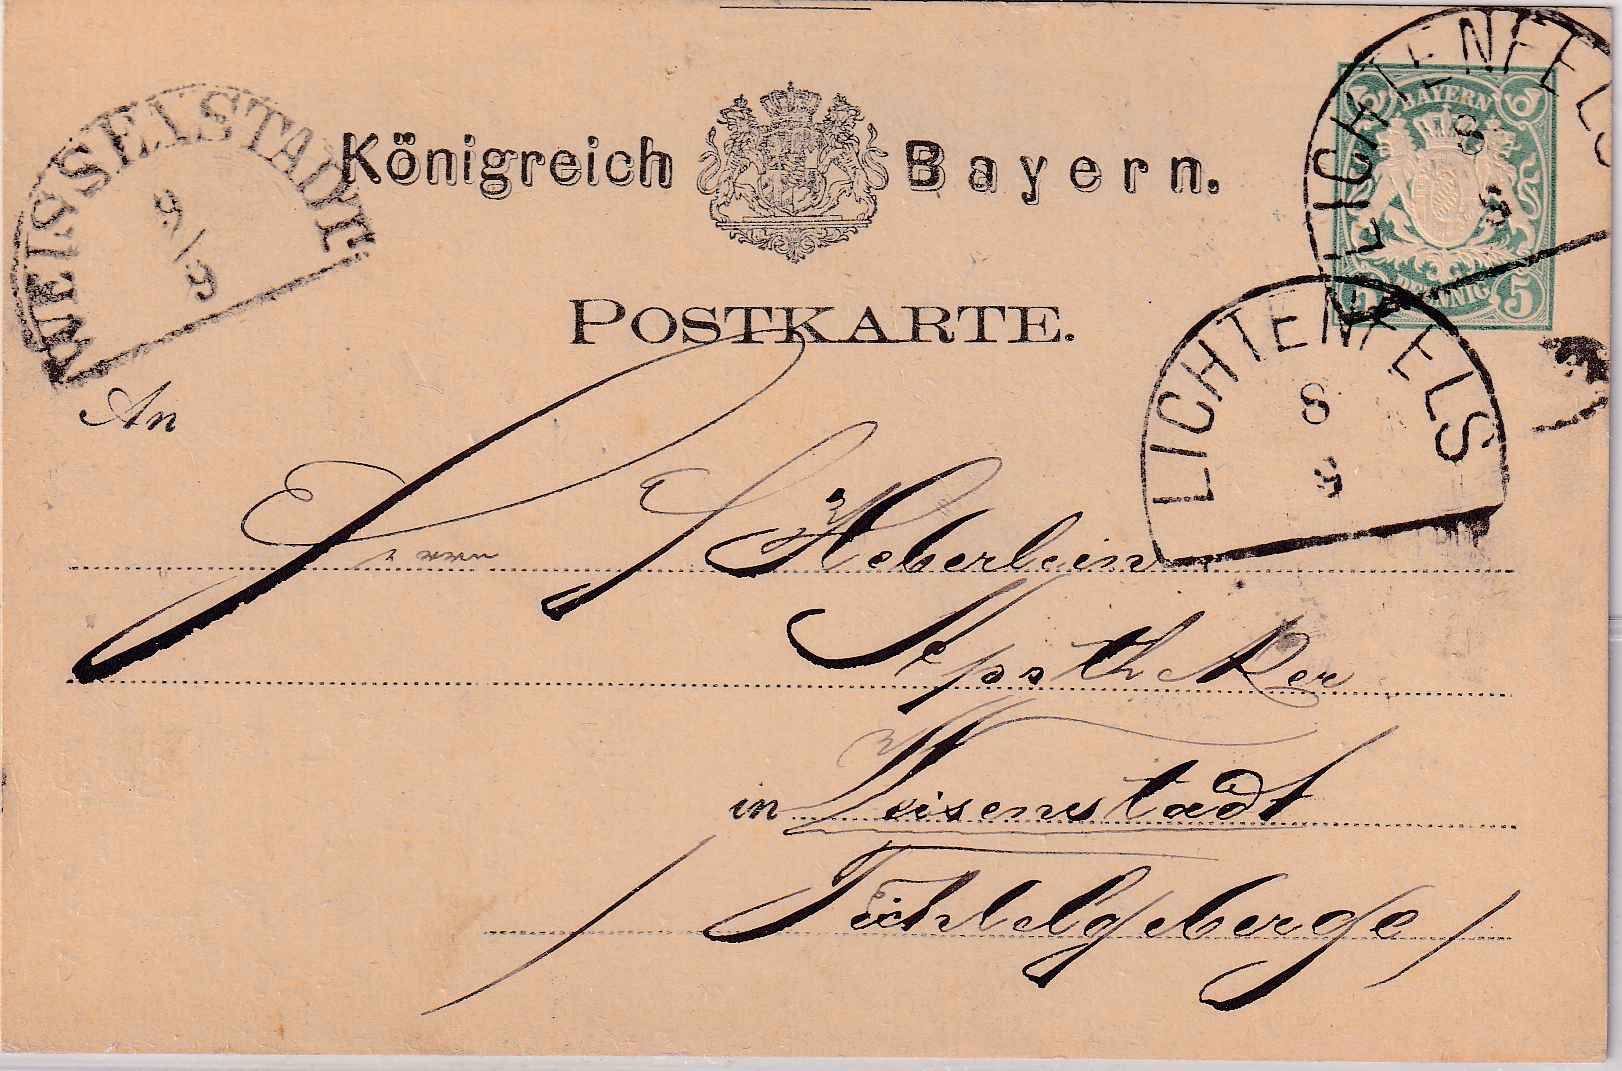 LICHTENFELS
8
9
BAYERN
5 PFENNIG 5
WEISSENSTADT
9/9
Königreich Bayern.
POSTKARTE.
LICHTENFELS
8
9
An
Herrn Heberlein
Apotheker
in Weisenstadt
Fichtelgeberge